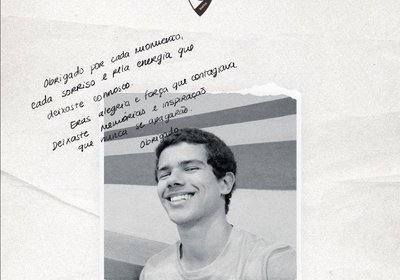 Obrigado por cada momento,
cada sorriso e pela energia que
deixaste connosco
Eras alegria e força que contagiava
Deixaste memórias e inspiração
que nunca se apagarão.
Obrigado